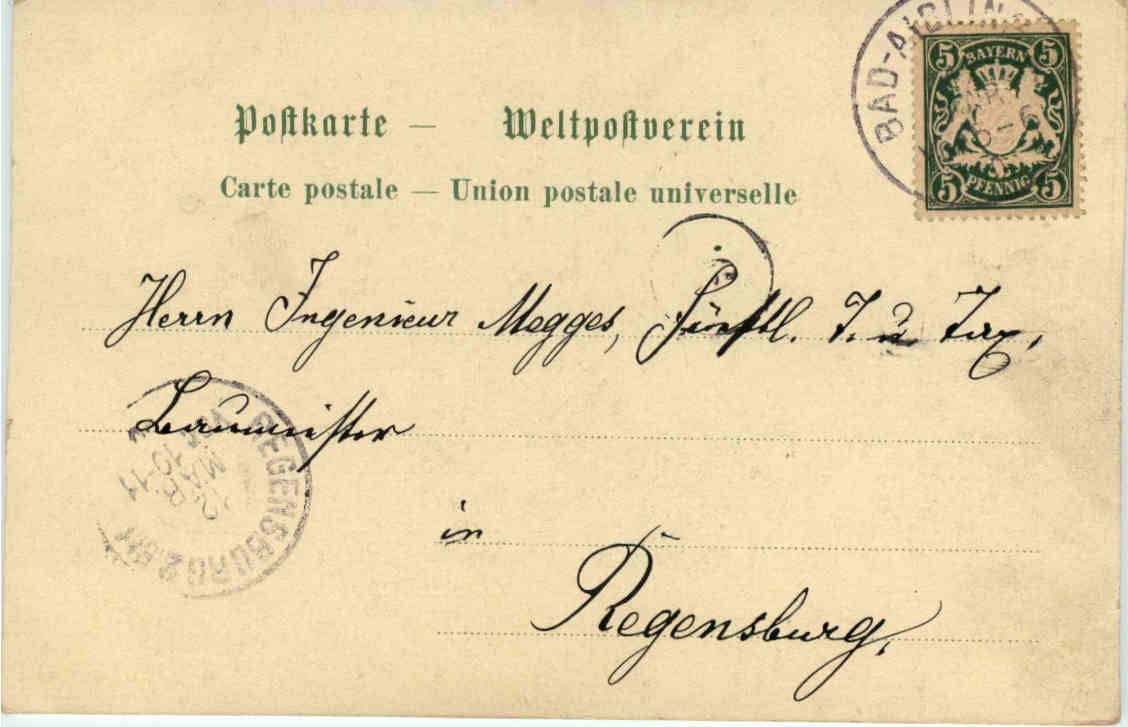 BAD-AIBLING
5 BAYERN 5
5 PFENNIG 5
Postkarte — Weltpostverein
Carte postale — Union postale universelle
Herrn Ingenieur Megges, Fürstl. T. u. Tax.
Baumeister
in
Regensburg.
REGENSBURG 2.
12
MAR
10-11